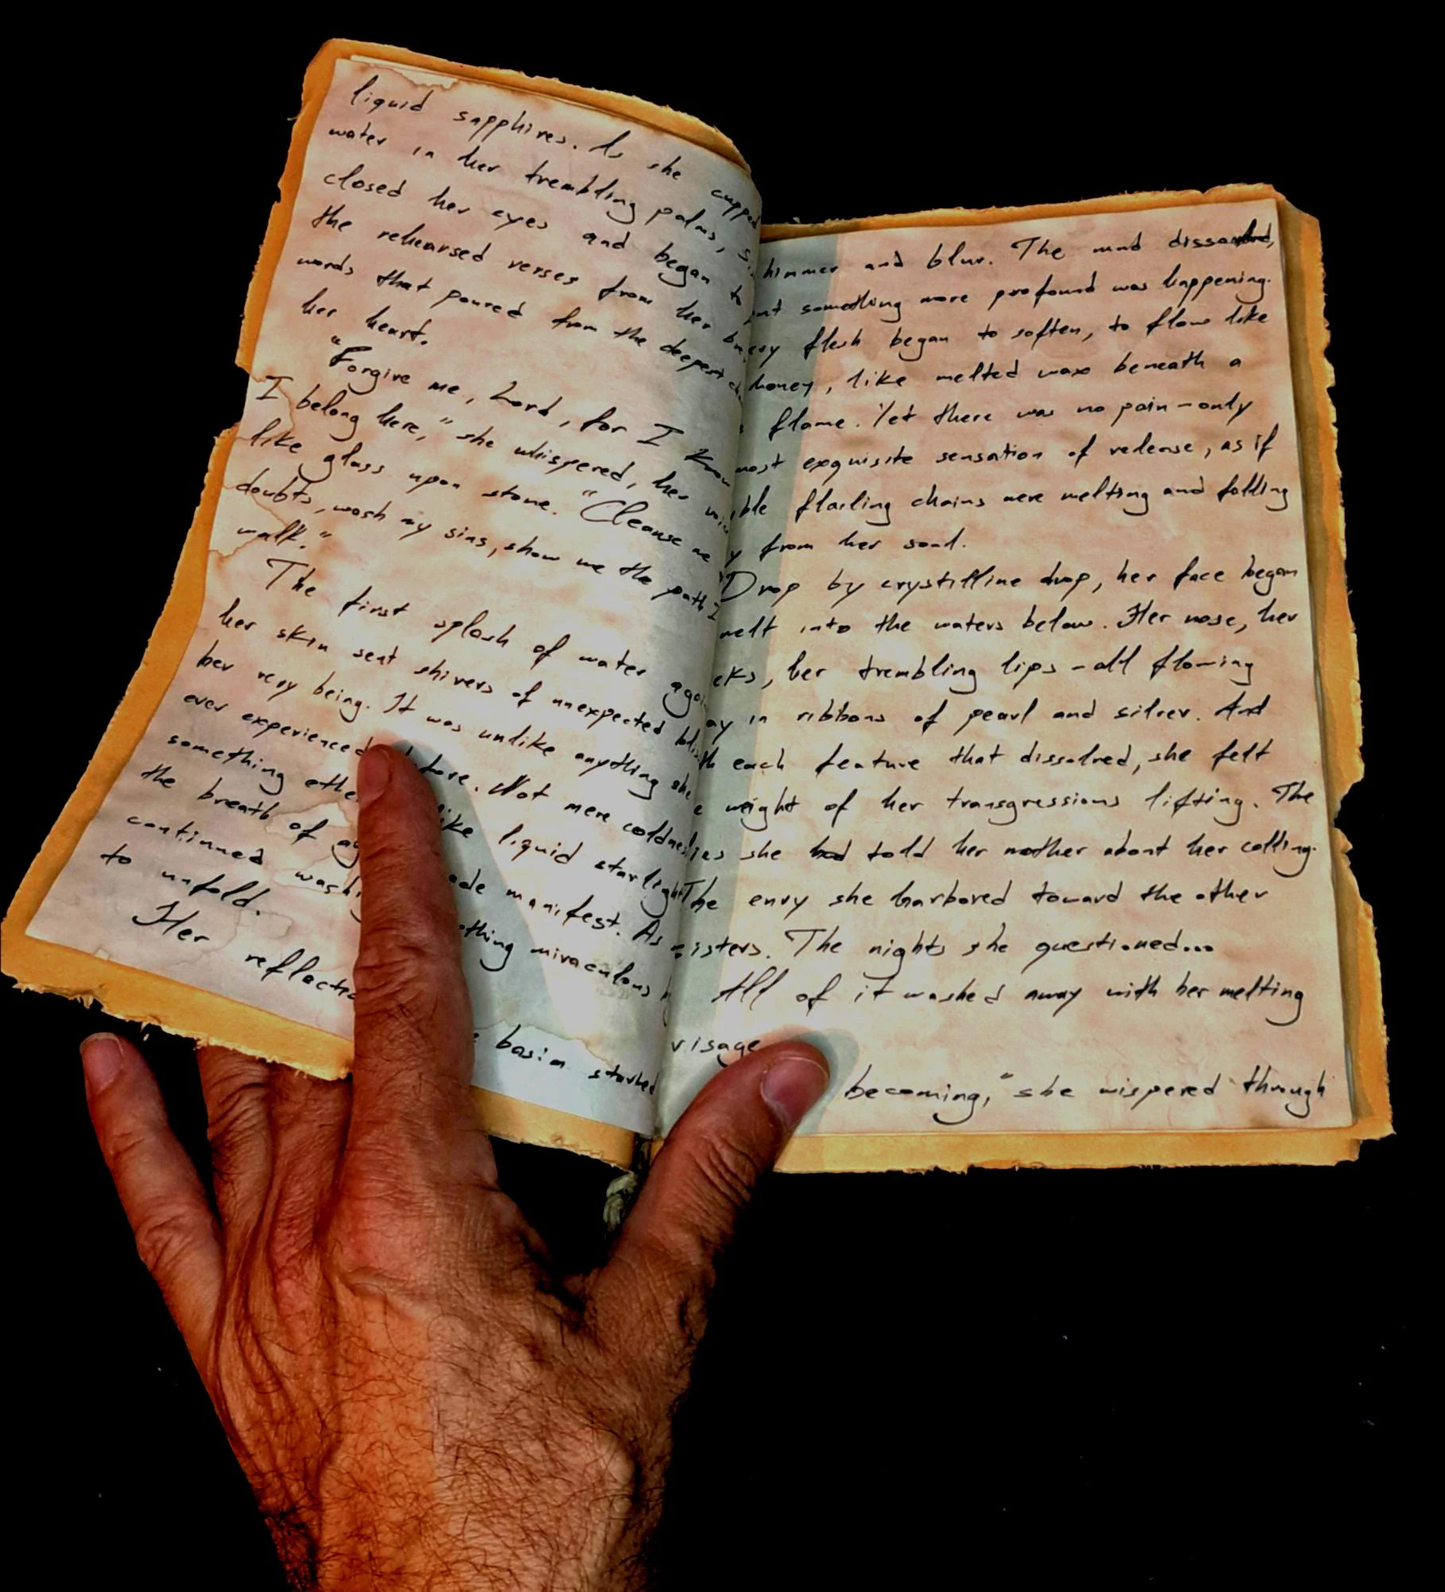 liquid sapphires. As she cupped
water in her trembling palms,
closed her eyes and began to
the rehearsed verses from her
words that poured from the deepest
her heart.
"Forgive me, Lord, for I know
I belong here," she whispered, her
like glass upon stone. "Cleanse me
doubts, wash my sins, show me the path I
walk."
The first splash of water
her skin sent shivers of unexpected
her very being. It was unlike anything she
ever experienced. Not mere coldness
something like liquid starlight
the breath of manifest. As
continued miraculous
to unfold.
Her basin started
himmer and blur. The mud
something more profound was happening.
flesh began to soften, to flow like
honey, like melted wax beneath a
flame. Yet there was no pain - only
most exquisite sensation of release, as if
ible flailing chains were melting and falling
y from her soul.
Drop by crystilline drop, her face began
melt into the waters below. Her nose, her
eks, her trembling lips - all flowing
ay in ribbons of pearl and silver. And
th each feature that dissolved, she felt
e weight of her transgressions lifting. The
ies she had told her mother about her calling.
The envy she harbored toward the other
sisters. The nights she questioned...
All of it washed away with her melting
visage
becoming," she wispered through